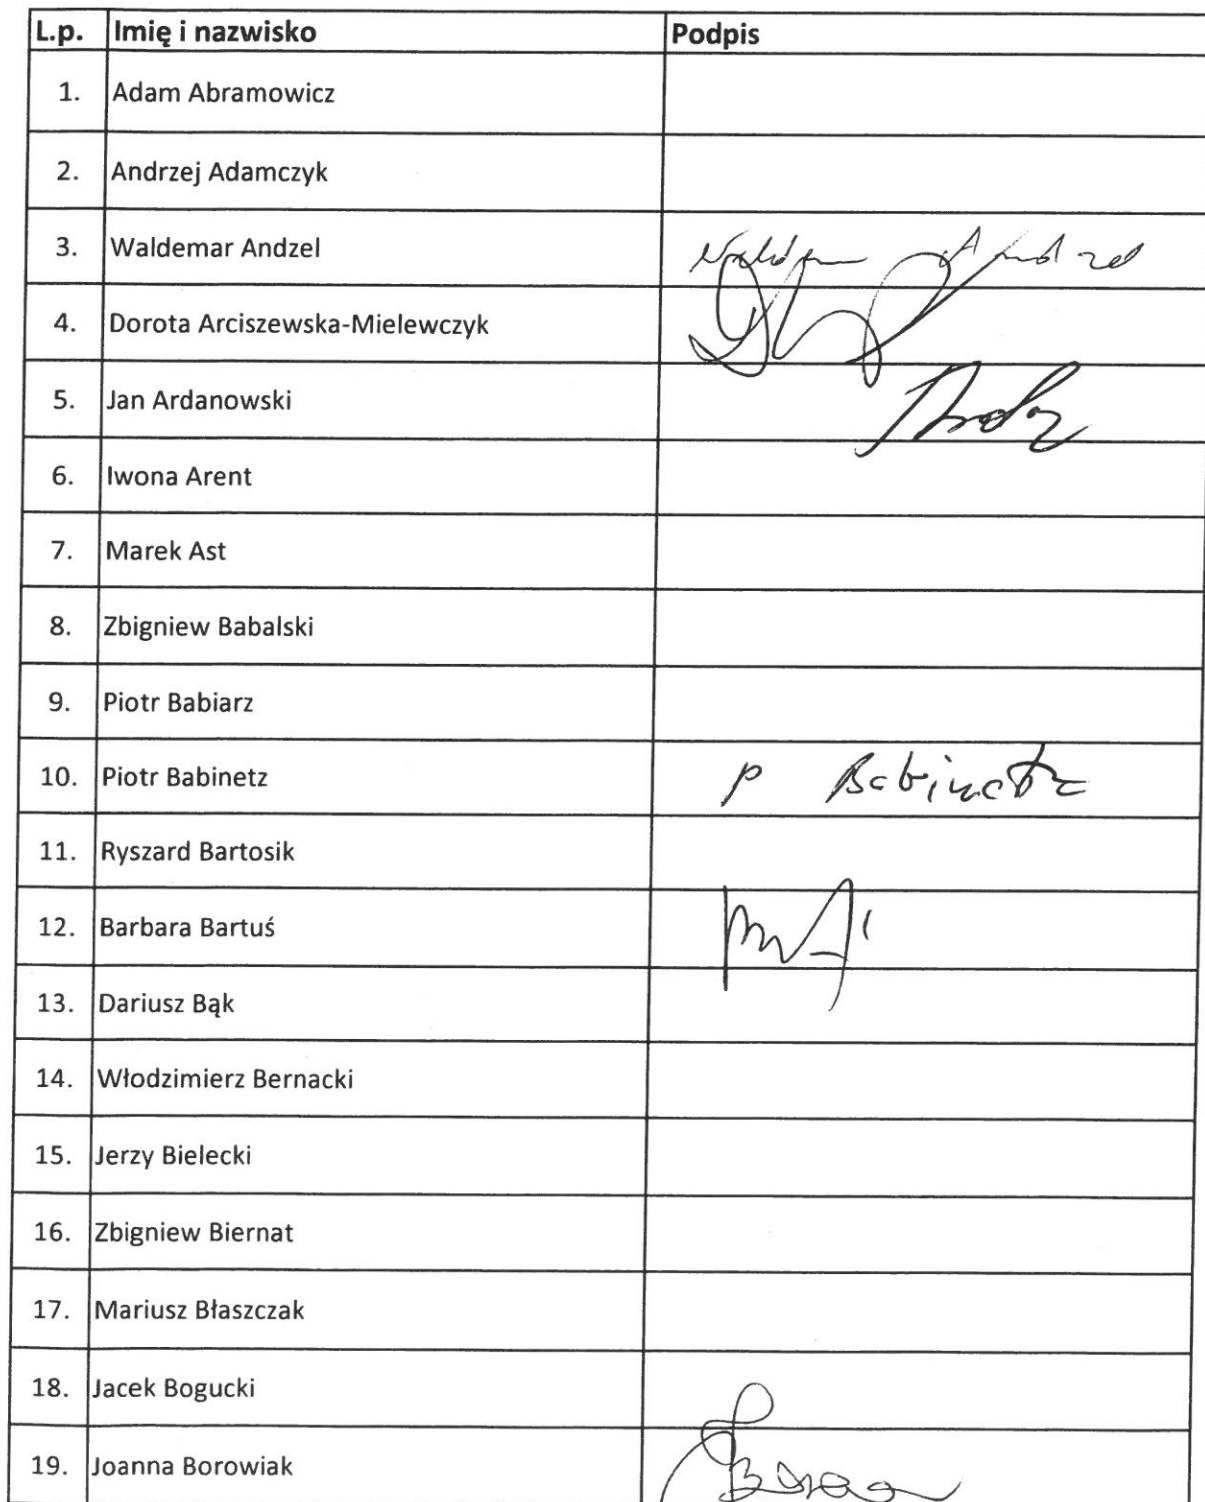 L.p. Imię i nazwisko Podpis
1. Adam Abramowicz
2. Andrzej Adamczyk
3. Waldemar Andzel
4. Dorota Arciszewska-Mielewczyk
5. Jan Ardanowski
6. Iwona Arent
7. Marek Ast
8. Zbigniew Babalski
9. Piotr Babiarz
10. Piotr Babinetz P Babinetz
11. Ryszard Bartosik
12. Barbara Bartuś
13. Dariusz Bąk
14. Włodzimierz Bernacki
15. Jerzy Bielecki
16. Zbigniew Biernat
17. Mariusz Błaszczak
18. Jacek Bogucki
19. Joanna Borowiak